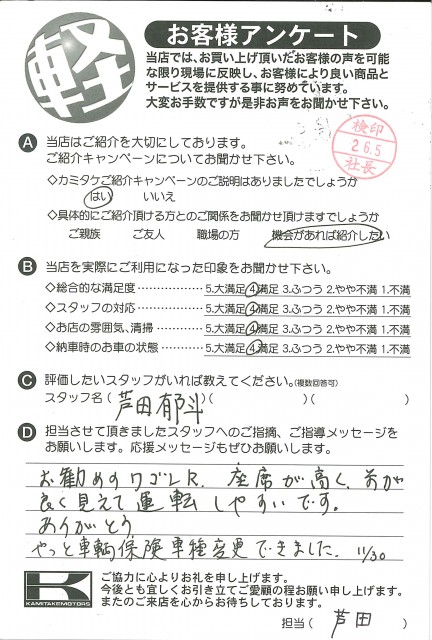 軽
お客様アンケート
当店では、お買い上げ頂いたお客様の声を可能
な限り現場に反映し、お客様により良い商品と
サービスを提供する事に努めています。
大変お手数ですが是非お声をお聞かせ下さい。
検印
26.5
社長
A 当店はご紹介を大切にしております。
ご紹介キャンペーンについてお聞かせ下さい。
◇カミタケご紹介キャンペーンのご説明はありましたでしょうか
はい いいえ
◇具体的にご紹介頂ける方とのご関係をお聞かせ頂けますでしょうか
ご親族 ご友人 職場の方 機会があれば紹介したい
B 当店を実際にご利用になった印象をお聞かせ下さい。
◇総合的な満足度 ・・・・・・・・・・・・ 5.大満足 4.満足 3.ふつう 2.やや不満 1.不満
◇スタッフの対応 ・・・・・・・・・・・・ 5.大満足 4.満足 3.ふつう 2.やや不満 1.不満
◇お店の雰囲気、清掃 ・・・・・・・・ 5.大満足 4.満足 3.ふつう 2.やや不満 1.不満
◇納車時のお車の状態 ・・・・・・・・ 5.大満足 4.満足 3.ふつう 2.やや不満 1.不満
C 評価したいスタッフがいれば教えてください。(複数回答可)
スタッフ名 ( 芦田郁斗 )( )( )
D 担当させて頂きましたスタッフへのご指摘、ご指導メッセージを
お願いします。応援メッセージもぜひお願いします。
お勧めのワゴンR、座席が高く、前が
良く見えて運転しやすいです。
ありがとう
やっと車輌保険車種変更できました。11/30
KAMITAKEMOTORS
ご協力に心よりお礼を申し上げます。
今後とも宜しくお引き立てご愛顧の程お願い申し上げます。
またのご来店を心からお待ちしております。
担当 ( 芦田 )